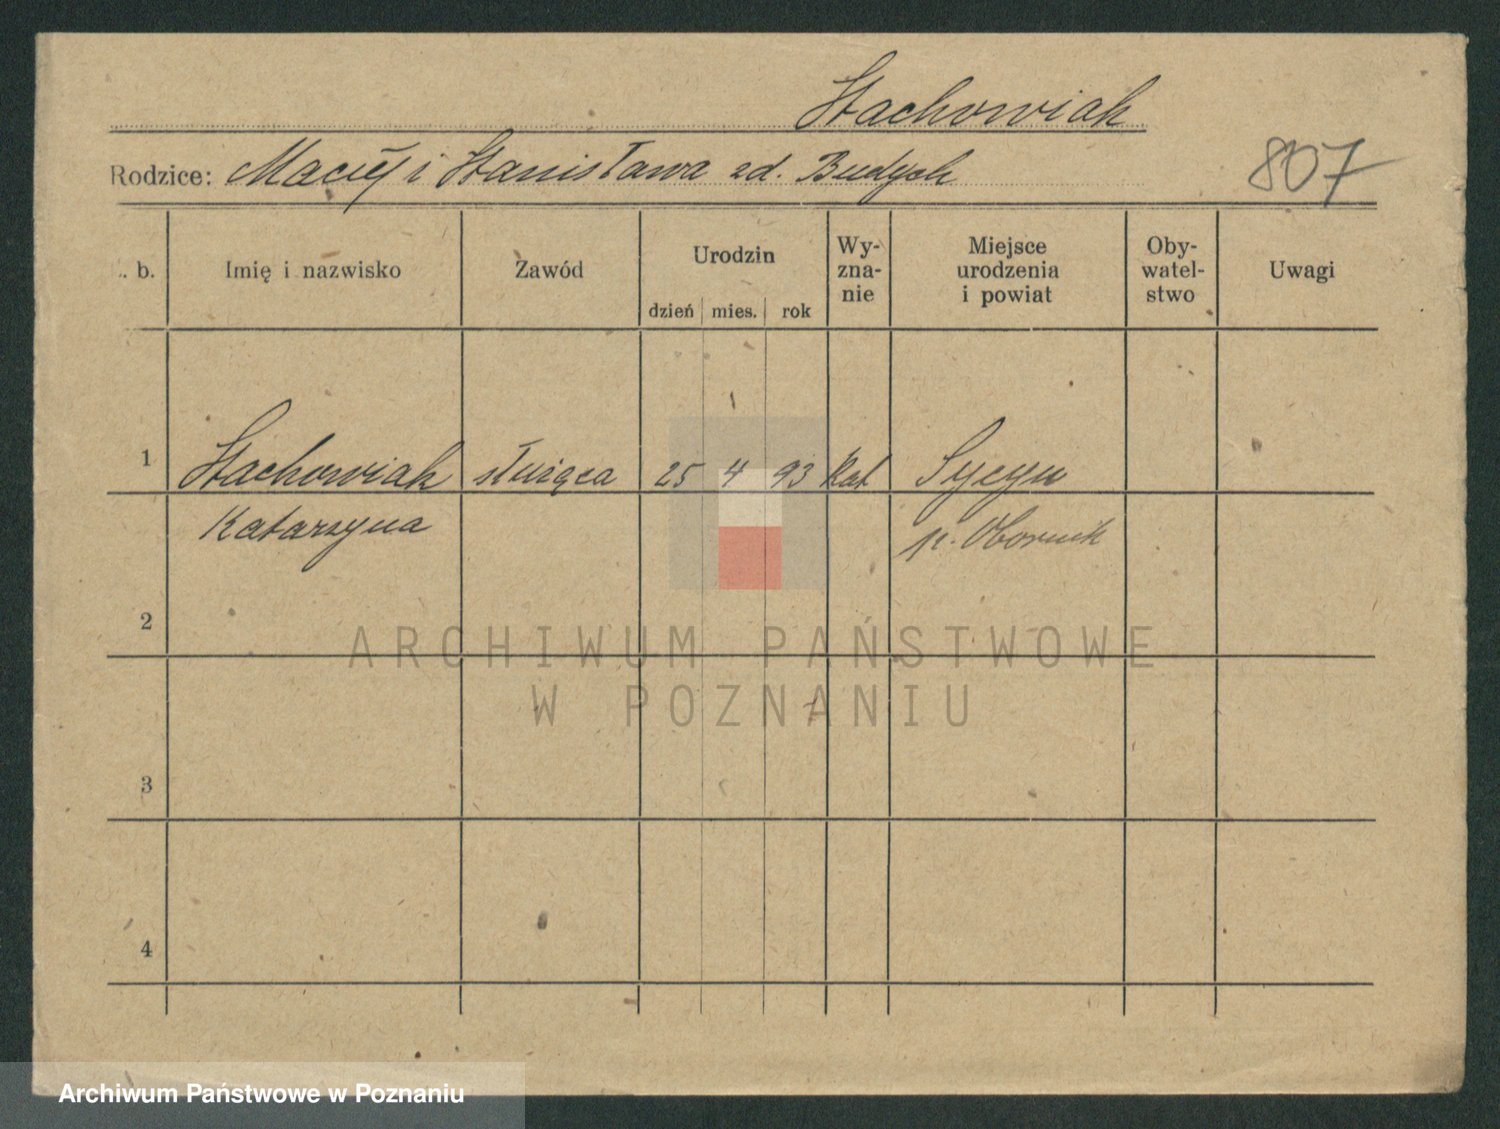 Stachowiak
Rodzice: Maciej i Stanisława zd. Budych
807
. b.
Imię i nazwisko
Zawód
Urodzin
dzień mies. rok
Wy-
zna-
nie
Miejsce
urodzenia
i powiat
Oby-
watel-
stwo
Uwagi
1 Stachowiak służąca 25 4 93 kat Sycyn
Katarzyna p. Obornik
2
3
4
ARCHIWUM PAŃSTWOWE
W POZNANIU
Archiwum Państwowe w Poznaniu